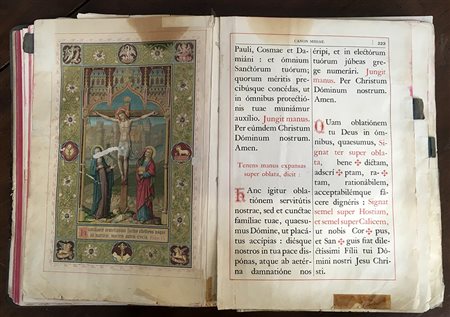 CANON MISSAE.
Pauli, Cosmae et Da-
miáni : et ómnium
Sanctórum tuórum;
quorum méritis pre-
cibúsque concédas, ut
in ómnibus protectió-
nis tuae muniámur
auxílio. Jungit manus.
Per eúmdem Christum
Dóminum nostrum.
Amen.
Tenens manus expansas
super oblata, dicit :
Hanc igitur oblati-
ónem servitútis
nostrae, sed et cunctae
famíliae tuae, quaesu-
mus Dómine, ut placá-
tus accípias : diésque
nostros in tua pace dispó-
nas, atque ab aetér-
na damnatióne nos
érípi, et in electórum
tuórum júbeas grege
numerári. Jungit
manus. Per Christum
Dóminum nostrum.
Amen.
Quam oblatiónem
tu Deus in óm-
nibus, quaesumus, Si-
gnat ter super obla-
ta, bene ✠ díctam,
adscrí ✠ ptam, ra-
tam, rationábilem,
acceptabilémque fá-
cere dignéris : Signat
semel super Hostiam,
et semel super Calicem,
ut nobis Cor ✠ pus,
et San ✠ guis fiat dile-
ctíssimi Fílii tui Dó-
mini nostri Jesu Chri-
sti.